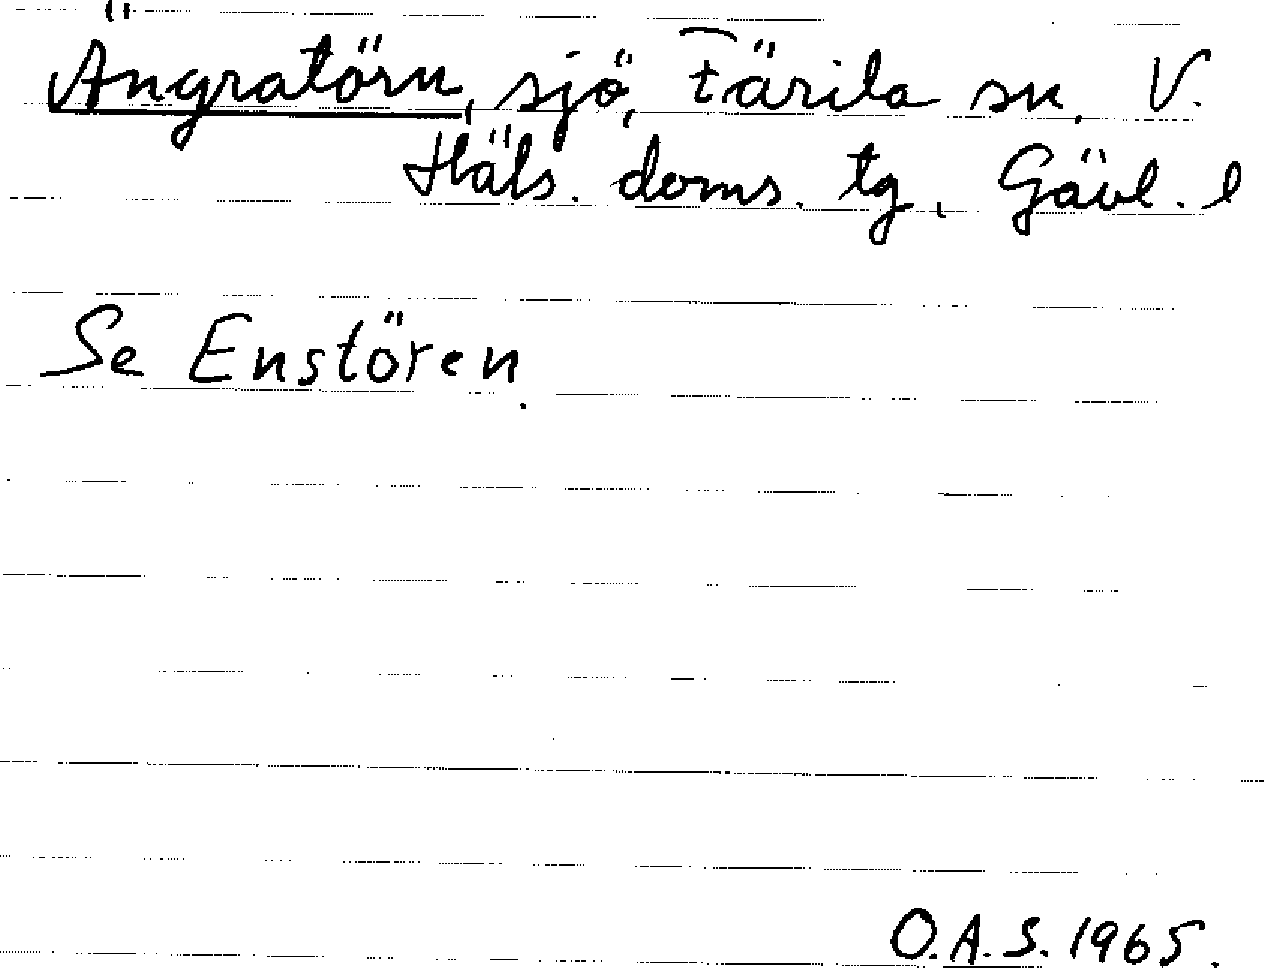 Ängratörn, sjö, Färila sn, V.
Häls. doms. tg, Gävl. l
Se Enstören.
O.A.S. 1965.